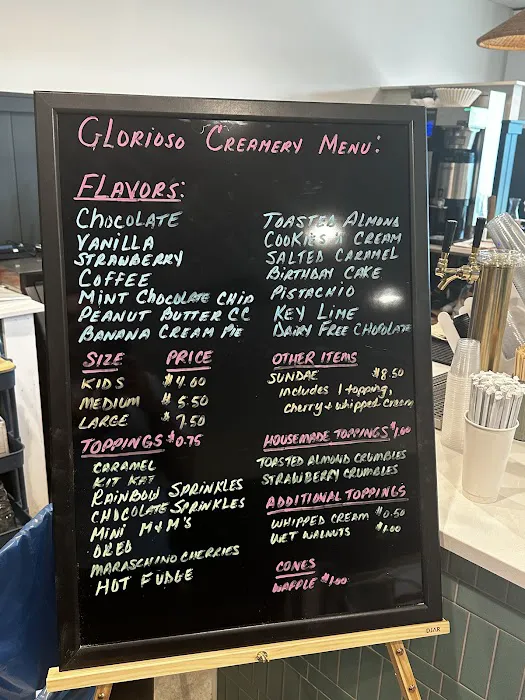 GLORIOSO CREAMERY MENU:
FLAVORS:
CHOCOLATE
VANILLA
STRAWBERRY
COFFEE
MINT CHOCOLATE CHIP
PEANUT BUTTER CC
BANANA CREAM PIE
TOASTED ALMOND
COOKIES N CREAM
SALTED CARAMEL
BIRTHDAY CAKE
PISTACHIO
KEY LIME
DAIRY FREE CHOCOLATE
SIZE PRICE
KIDS $4.00
MEDIUM $5.50
LARGE $7.50
TOPPINGS $0.75
CARAMEL
KIT KAT
RAINBOW SPRINKLES
CHOCOLATE SPRINKLES
MINI M&M'S
OREO
MARASCHINO CHERRIES
HOT FUDGE
OTHER ITEMS
SUNDAE $8.50
includes 1 topping,
cherry + whipped cream
HOUSEMADE TOPPINGS $1.00
TOASTED ALMOND CRUMBLES
STRAWBERRY CRUMBLES
ADDITIONAL TOPPINGS
WHIPPED CREAM $0.50
WET WALNUTS $1.00
CONES
WAFFLE $1.00
OJAR